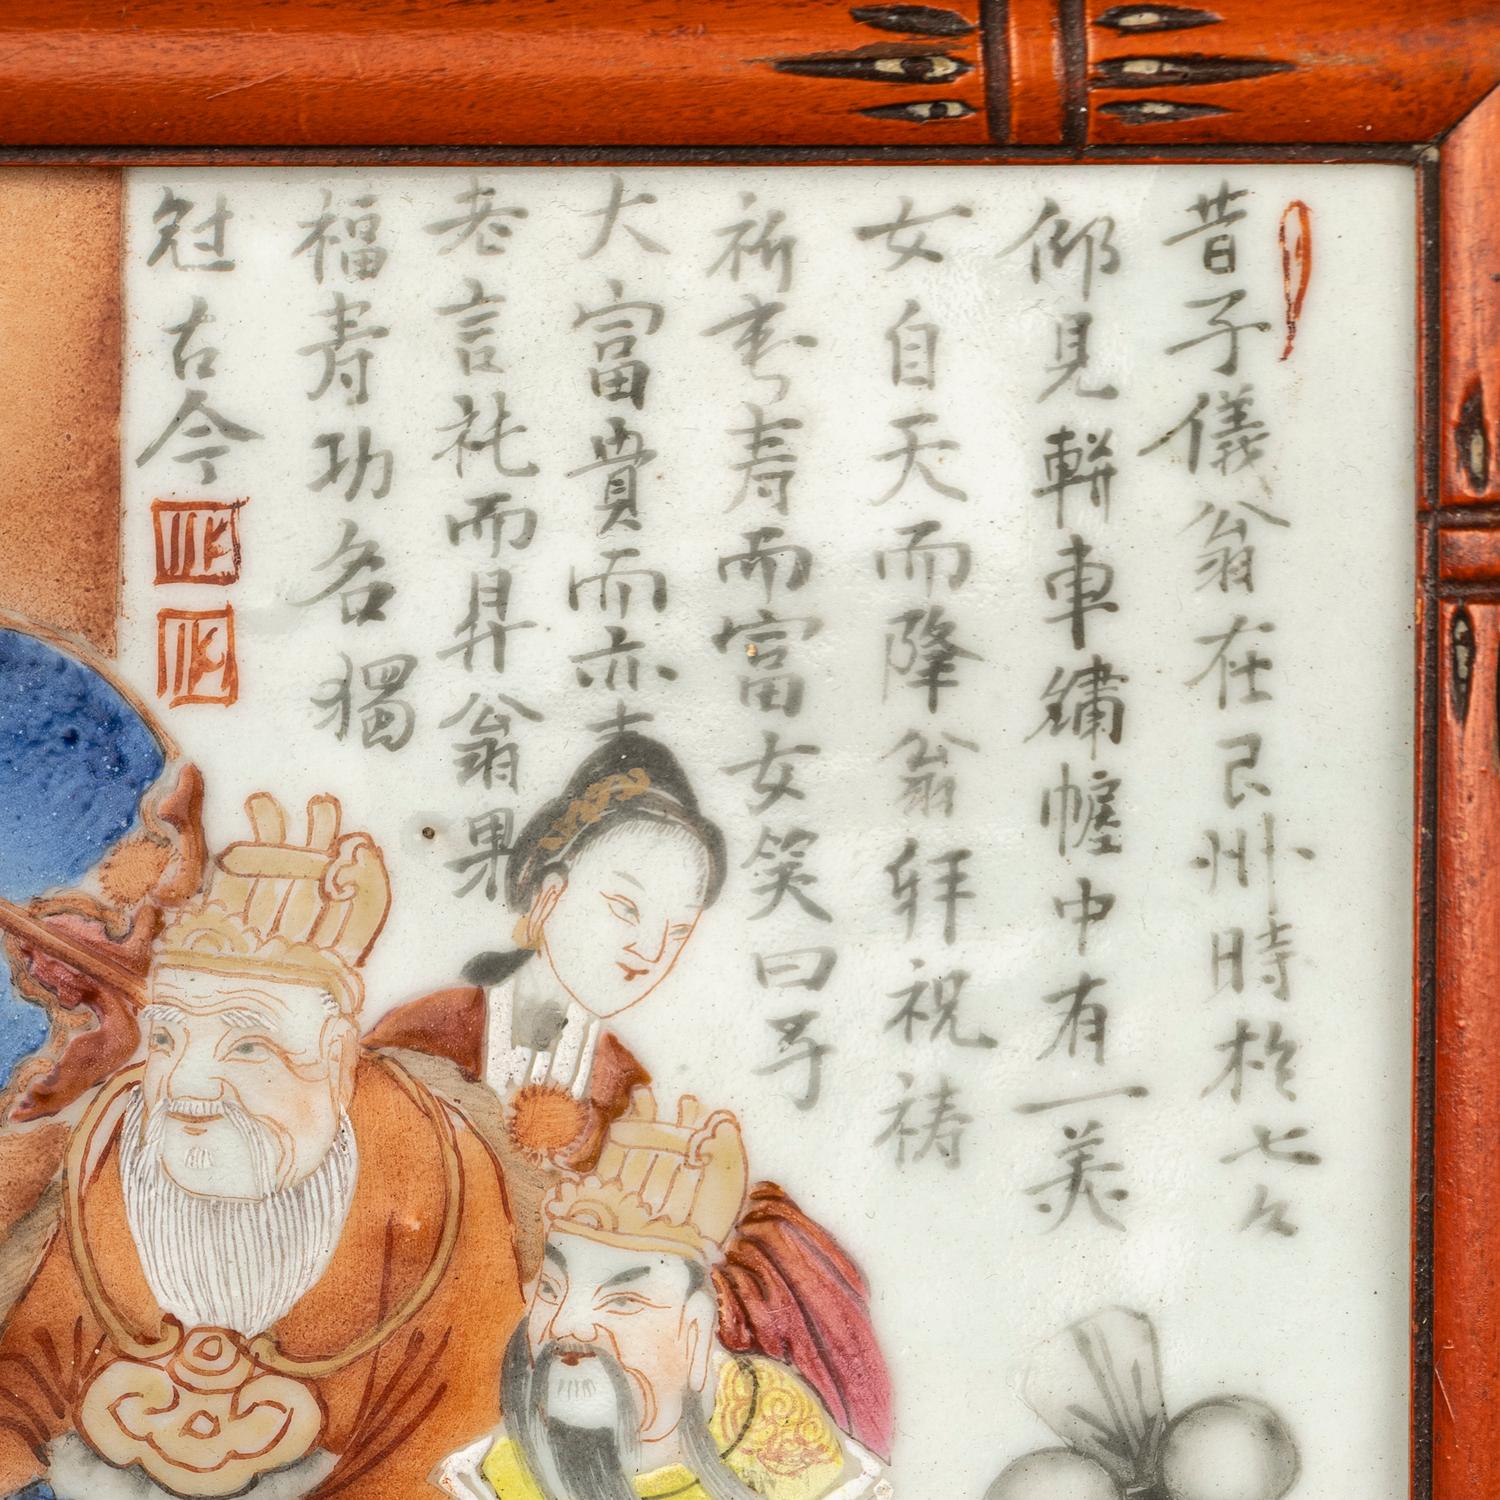 昔子儀翁在艮州時於七夕
仰見軿車繡幄中有一美
女自天而降翁拜祝禱
祈考壽而富女笑曰子
大富貴而亦
老言訖而昇翁果
福壽功名獨
冠古今